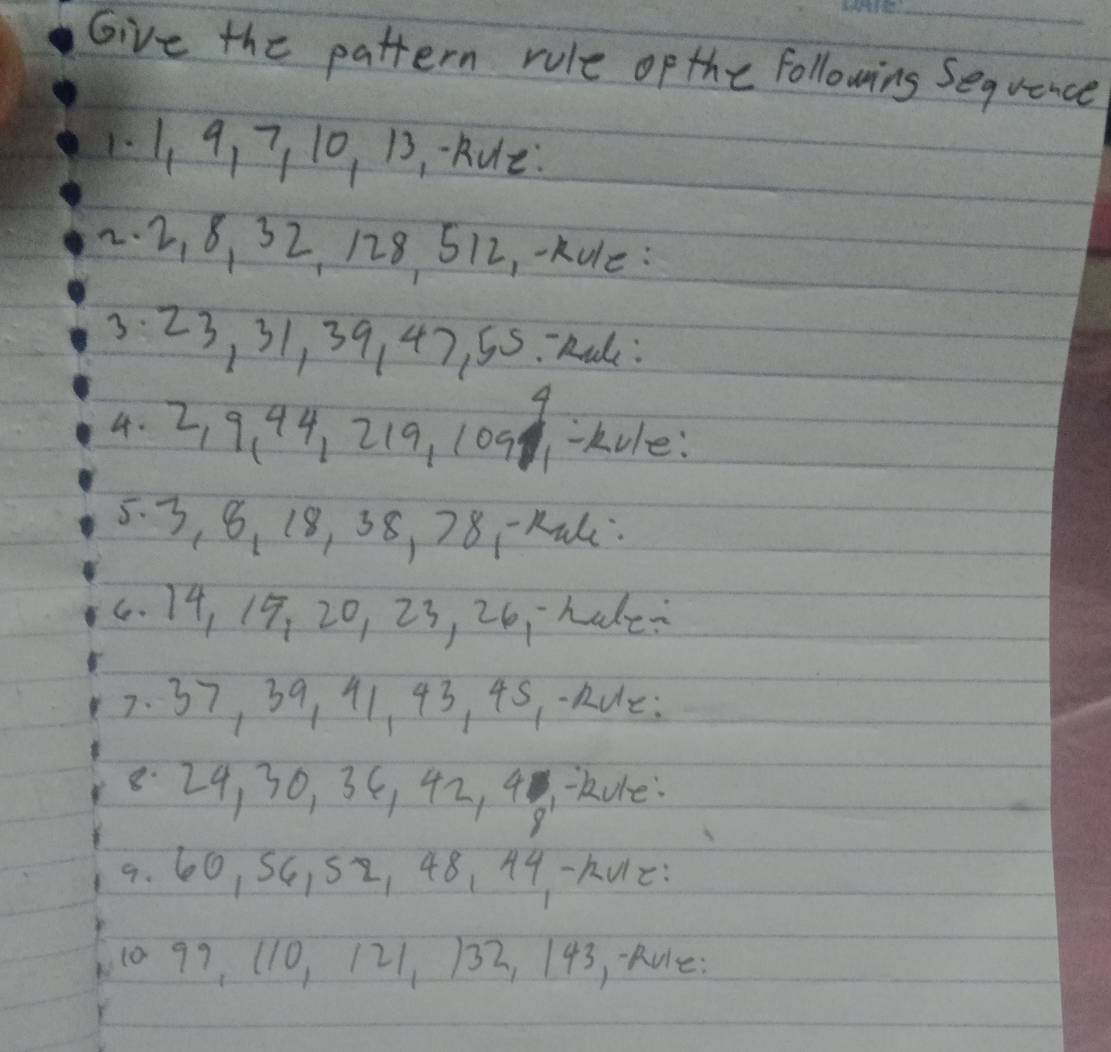 DATE:
Give the pattern rule of the following Sequence
1. 1, 4, 7, 10, 13, -Rule:
2. 2, 8, 32, 128, 512, -Rule:
3. 23, 31, 39, 47, 55. -Rule:
4. 2, 9, 44, 219, 1094, -Rule:
5. 3, 8, 18, 38, 78, -Rule:
6. 14, 17, 20, 23, 26, -Rule:
7. 37, 39, 41, 43, 45, -Rule:
8. 24, 30, 36, 42, 48, -Rule:
9. 60, 56, 52, 48, 44, -Rule:
10 99, 110, 121, 132, 143, -Rule: